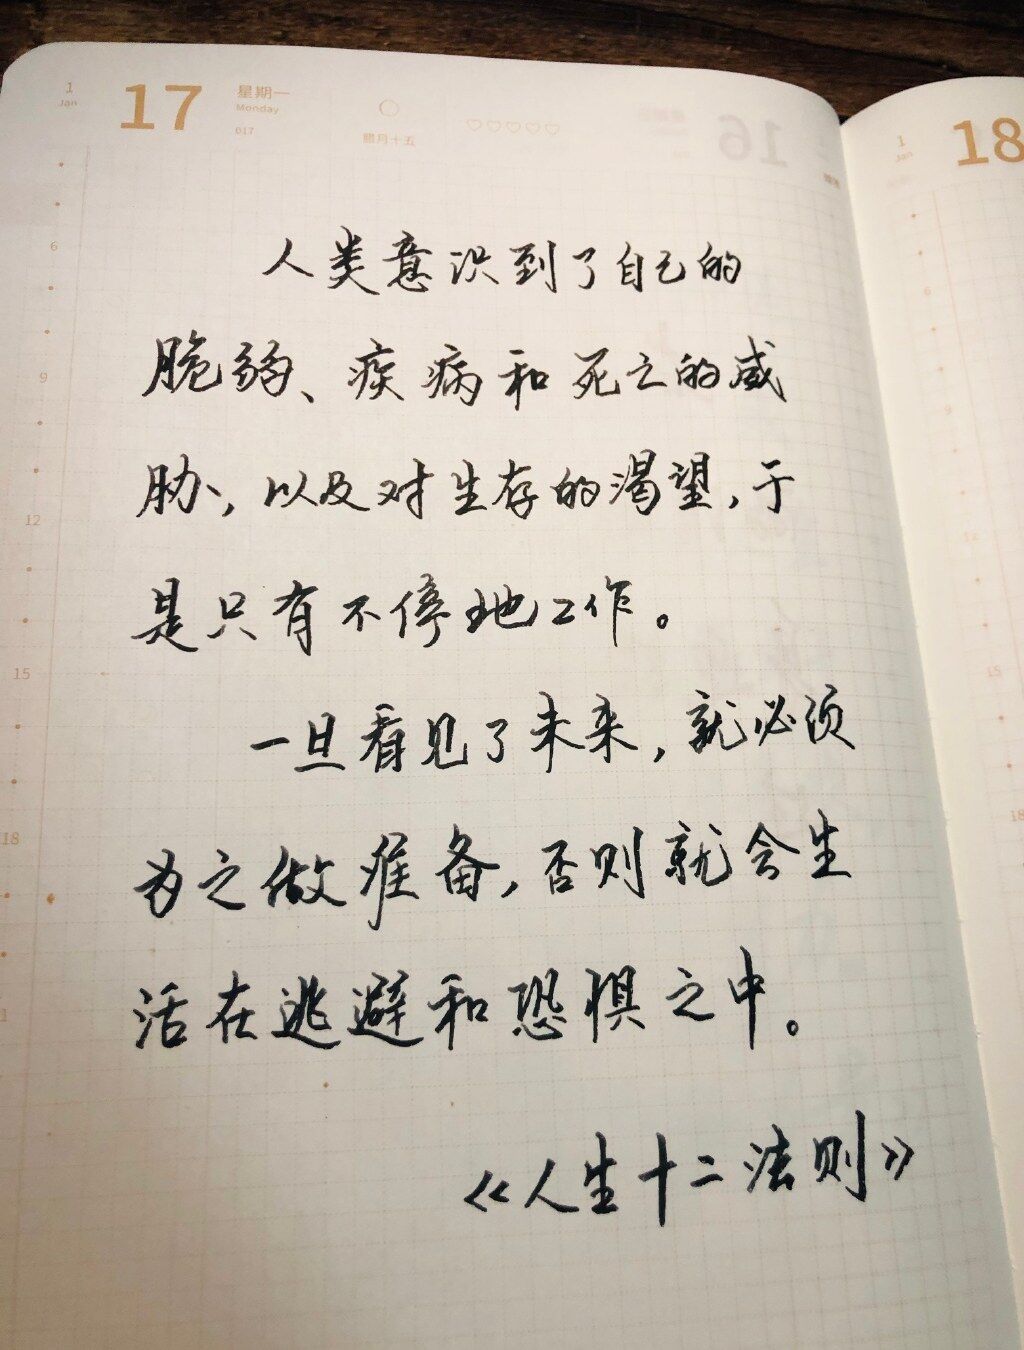 1
Jan
17
星期一
Monday
017
腊月十五
16
1
Jan
18
人类意识到了自己的
脆弱、疾病和死亡的威
胁,以及对生存的渴望,于
是只有不停地工作。
一旦看见了未来,就必须
为之做准备,否则就会生
活在逃避和恐惧之中。
《人生十二法则》
6
9
12
15
18
6
9
12
15
18